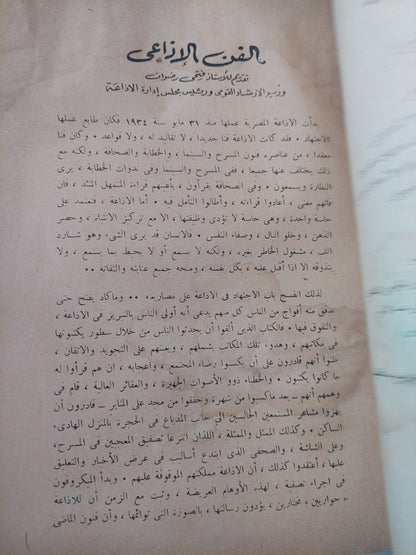 الفن الإذاعى
تقديم للأستاذ فتحى رضوان
وزير الإرشاد القومى ورئيس مجلس إدارة الاذاعة
بدأت الاذاعة المصرية عملها منذ ٣١ مايو سنة ١٩٣٤ فكان طابع عملها
« الاجتهاد » فقد كانت الاذاعة فنا جديدا ، لا تقاليد له ، ولا قواعد . وكان فنا
معقدا ، من عناصره ، فنون المسرح والسينما ، والخطابة والصحافة ، ولكنه مع
ذلك يختلف عنها جميعا ، ففى المسرح والسينما وفى ندوات الخطابة ، يرى
النظارة ويسمعون . وفى الصحافة يقرأون ، بأعينهم قراءة المتمهل المتئد ، فان
فاتهم معنى ، أعادوا قراءته ، وأطالوا التأمل فيه . أما الاذاعة ، فتعتمد على
حاسة واحدة ، وهى حاسة لا تؤدى وظيفتها ، الا مع تركيز الانتباه ، وحصر
الذهن ، وخلو البال ، وصفاء النفس . فالانسان قد يرى الشىء وهو شارد
اللب ، مشغول الخاطر بغيره ، ولكنه لا يسمع أو لا يحيط بما يسمع ، ولا
يتذوقه الا اذا أقبل عليه ، بكل نفسه ، ومنحه جميع عنايته والتفاته ..
لذلك انفسح باب الاجتهاد فى الاذاعة على مصاريعه .. وما كاد يفتح حتى
تدفق منه أفواج من الناس كل منهم يدعى أنه أولى الناس بالتبريز فى الاذاعة ،
والتفوق فيها . فالكتاب الذين ألفوا أن يحدثوا الناس من خلال سطور يكتبونها
فى مكاتبهم ، وهدوء تلك المكاتب يشملهم ، ويعينهم على التجويد والاتقان ،
ظنوا أنهم قادرون على أن يكسبوا رضاء المجتمع ، واعجابه ، ان هم قرأوا له
ما كانوا يكتبون . والخطباء ذوو الأصوات الجهيرة ، والعقائر العالية ، قام فى
وهمهم أنهم ــ بعد ما كسبوا من شهرة وحققوا من مجد على المنابر ــ قادرون أن
يهزوا مشاعر المستمعين الجالسين الى جانب المذياع فى الحجرة بالمنزل الهادىء
الساكن . وكذلك الممثل والممثلة ، اللذان انتزعا تصفيق المعجبين فى المسرح ،
وعلى الشاشة ، والصحفى الذى ابتدع أساليب فى عرض الأخبار والتعليق
عليها ، أعتقدوا كذلك ، أن الاذاعة مملكتهم الموقوفة عليهم . وبدأ الميكروفون
فى اجراء تصفية ، لهذه الأوهام العريضة ، وثبت مع الزمن أن للاذاعة
حواريين ، مختارين ، يؤدون رسالتها ، بالصورة التى توائمها ، وأن فنون الماضى